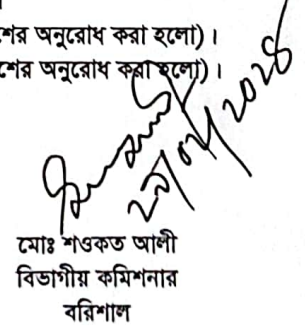 শের অনুরোধ করা হলো)।
শের অনুরোধ করা হলো)।
মোঃ শওকত আলী
বিভাগীয় কমিশনার
বরিশাল